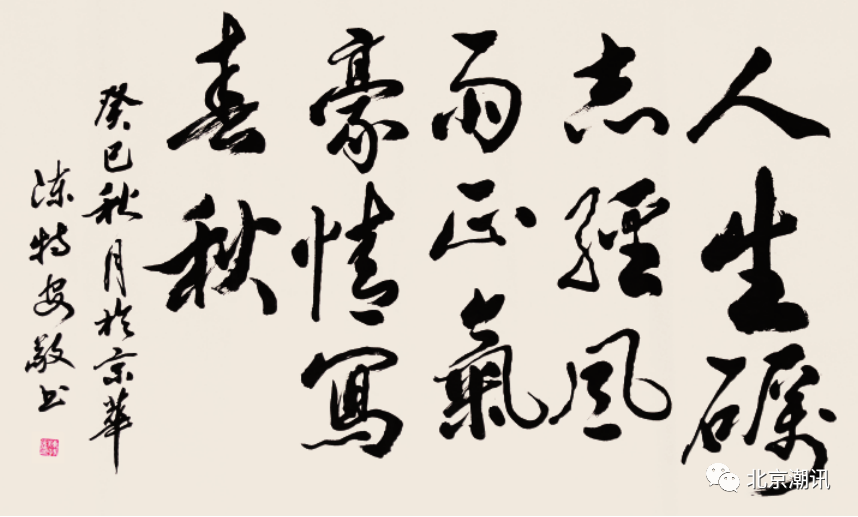 人生礪
志經風
雨正氣
豪情寫
春秋
癸巳秋月於京華
特安敬书
北京潮讯